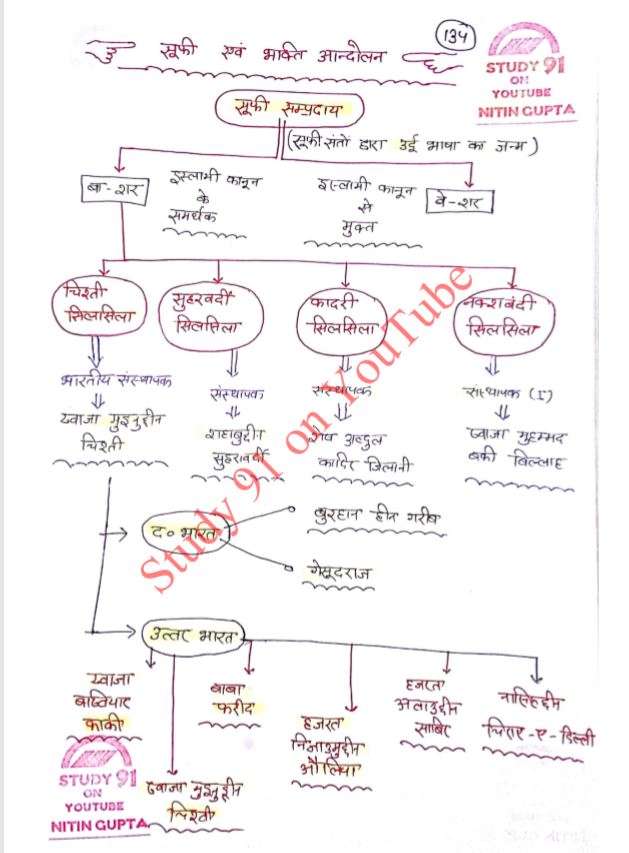 134
सूफी एवं भाक्ति आन्दोलन
STUDY 91
ON
YOUTUBE
NITIN GUPTA
सूफी सम्प्रदाय
(सूफी संतों द्वारा उर्दू भाषा का जन्म)
बा-शर
इस्लामी कानून
के
समर्थक
इस्लामी कानून
से
मुक्त
बे-शर
चिश्ती
सिलसिला
सुहरवर्दी
सिलसिला
कादरी
सिलसिला
नक्शबंदी
सिलसिला
भारतीय संस्थापक
संस्थापक
संस्थापक
संस्थापक (I)
ख्वाजा मुइनुद्दीन
चिश्ती
शहाबुद्दीन
सुहरावर्दी
शेख अब्दुल
कादिर जिलानी
ख्वाजा मुहम्मद
बकी बिल्लाह
Study 91 on YouTube
द० भारत
बुरहान दीन गरीब
गेसूदराज
उत्तर भारत
ख्वाजा
बख्तियार
काकी
बाबा
फरीद
हजरत
निजामुद्दीन
औलिया
हजरत
अलाउद्दीन
साबिर
नासिरुद्दीन
चिराग-ए-दिल्ली
ख्वाजा मुइनुद्दीन
चिश्ती
STUDY 91
ON
YOUTUBE
NITIN GUPTA